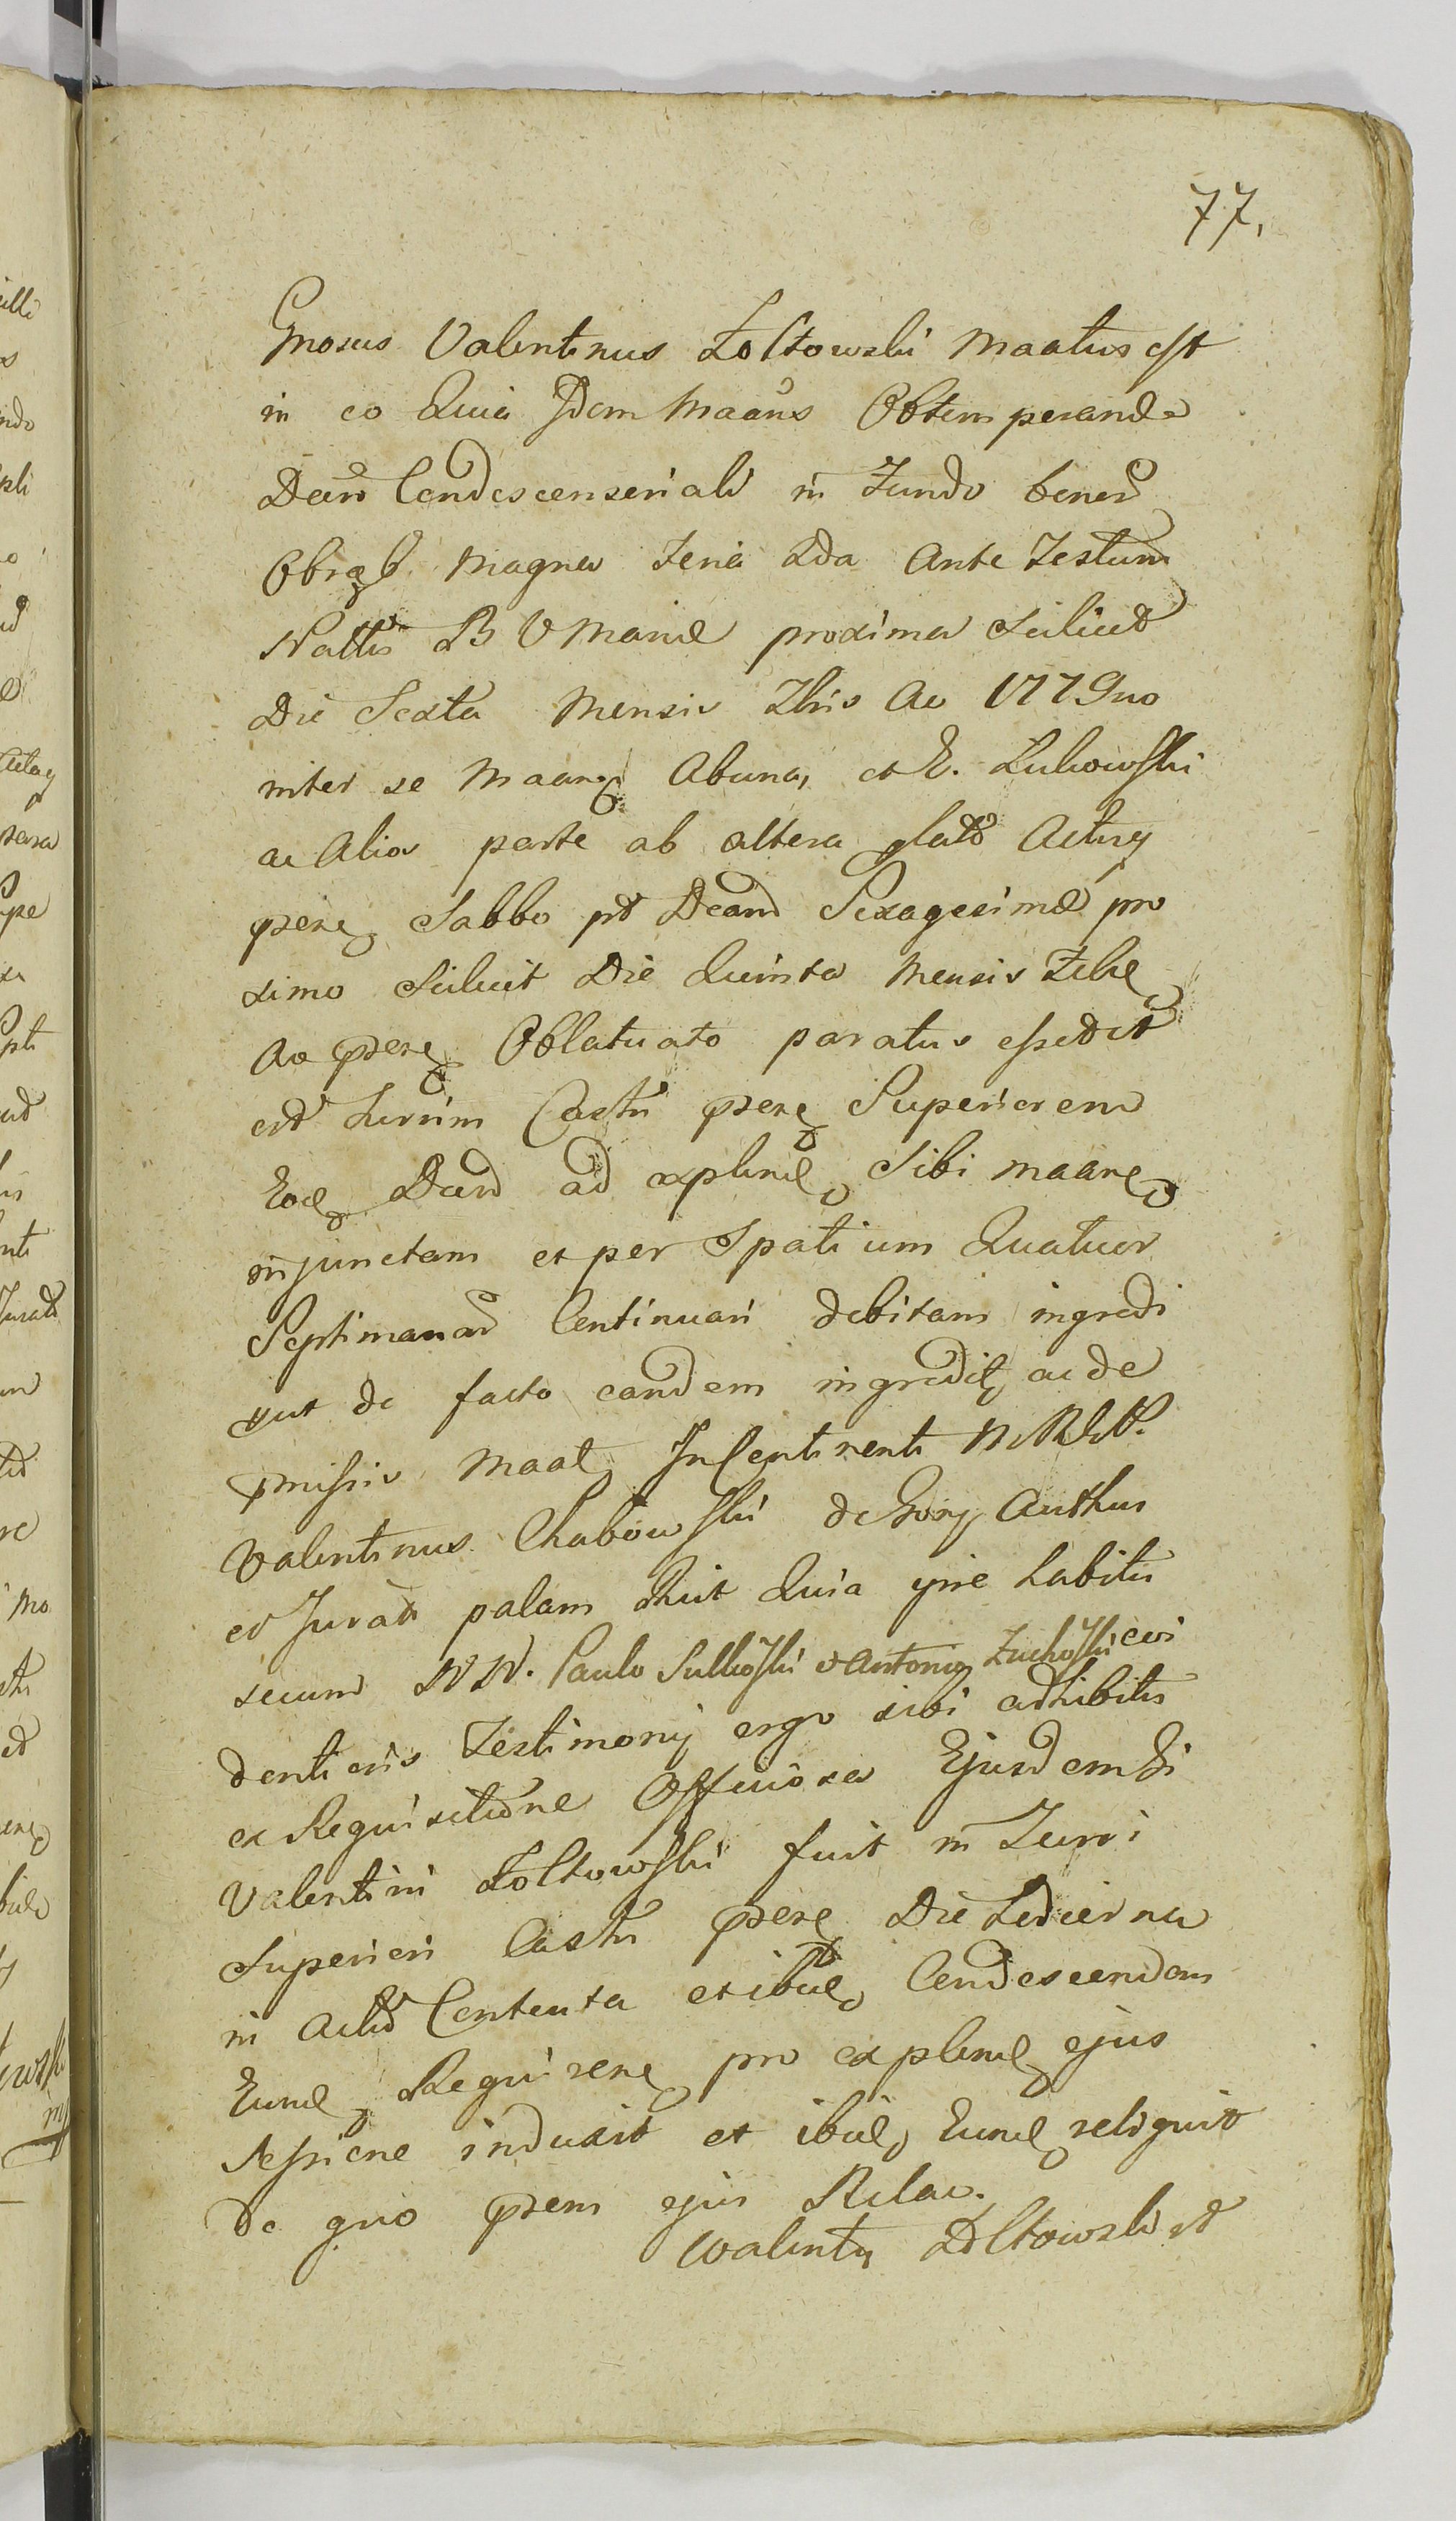 77.
Gnosus Valentinus Zołtowski Maatus est
in eo Quia Idem Maans Obtemperando
Decro Condescensoriali in Fundo bonor
Obręb Magna Feria 2da Ante Festum
Nattis B V Mariæ proxima Scilicet
Die Sexta Mensis 7bris Ao 1779no
inter se Maanem Ab una, et G. Lukowski
ac Alia parte ab altera lato Actisq
psens Sabbo pt Dcam Sexagesimæ pro
ximo Scilicet Die Quinta Mensis Febr
Ao psen Oblatuato paratus esset
et Turrim Castri psen Superiorem
Eod Decro ad explend Sibi maane
injunctam et per Spatium Quatuor
Septimanar Continuari debitam ingredi
put de facto eandem ingredit ac de
pmissis Maat In Continenti M
Valentinus Chabowski de Gory Authus
et Jurats palam Quia ipse habitis
secum NN. Paulo Sulkoski et Antonio Zuchoski cui
dentioris Testimonij ergo sibi adhibitis
ex Requisitione Officiosa Ejusdem Gi
Valentini Zołtowski fuit in Turri
Superiori Castri psen Die Hodierna
in Actu Contenta et ibid Condescendem
Eund Requirens pro explend ejus
Sessione induxit et ibid Eund reliquit
de quo psem ejus Relao.
Walenty Zołtowski